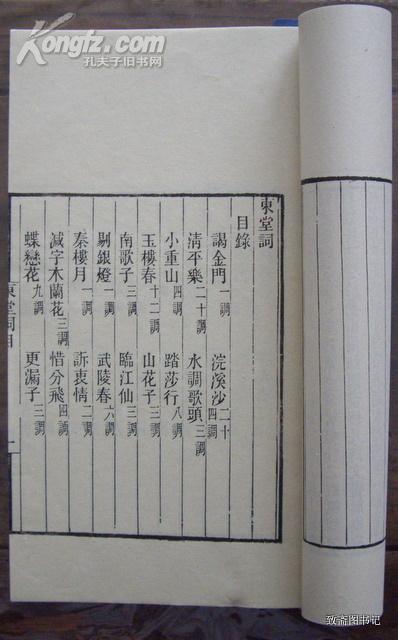 Kongfz.com
孔夫子旧书网
東堂詞
目錄
謁金門一調 浣溪沙二十四調
清平樂二十調 水調歌頭三調
小重山四調 踏莎行八調
玉樓春十二調 山花子三調
南歌子三調 臨江仙三調
剔銀燈一調 武陵春六調
秦樓月一調 訴衷情二調
減字木蘭花三調 惜分飛四調
蝶戀花九調 更漏子三調
東堂詞目 一
致斋图书记